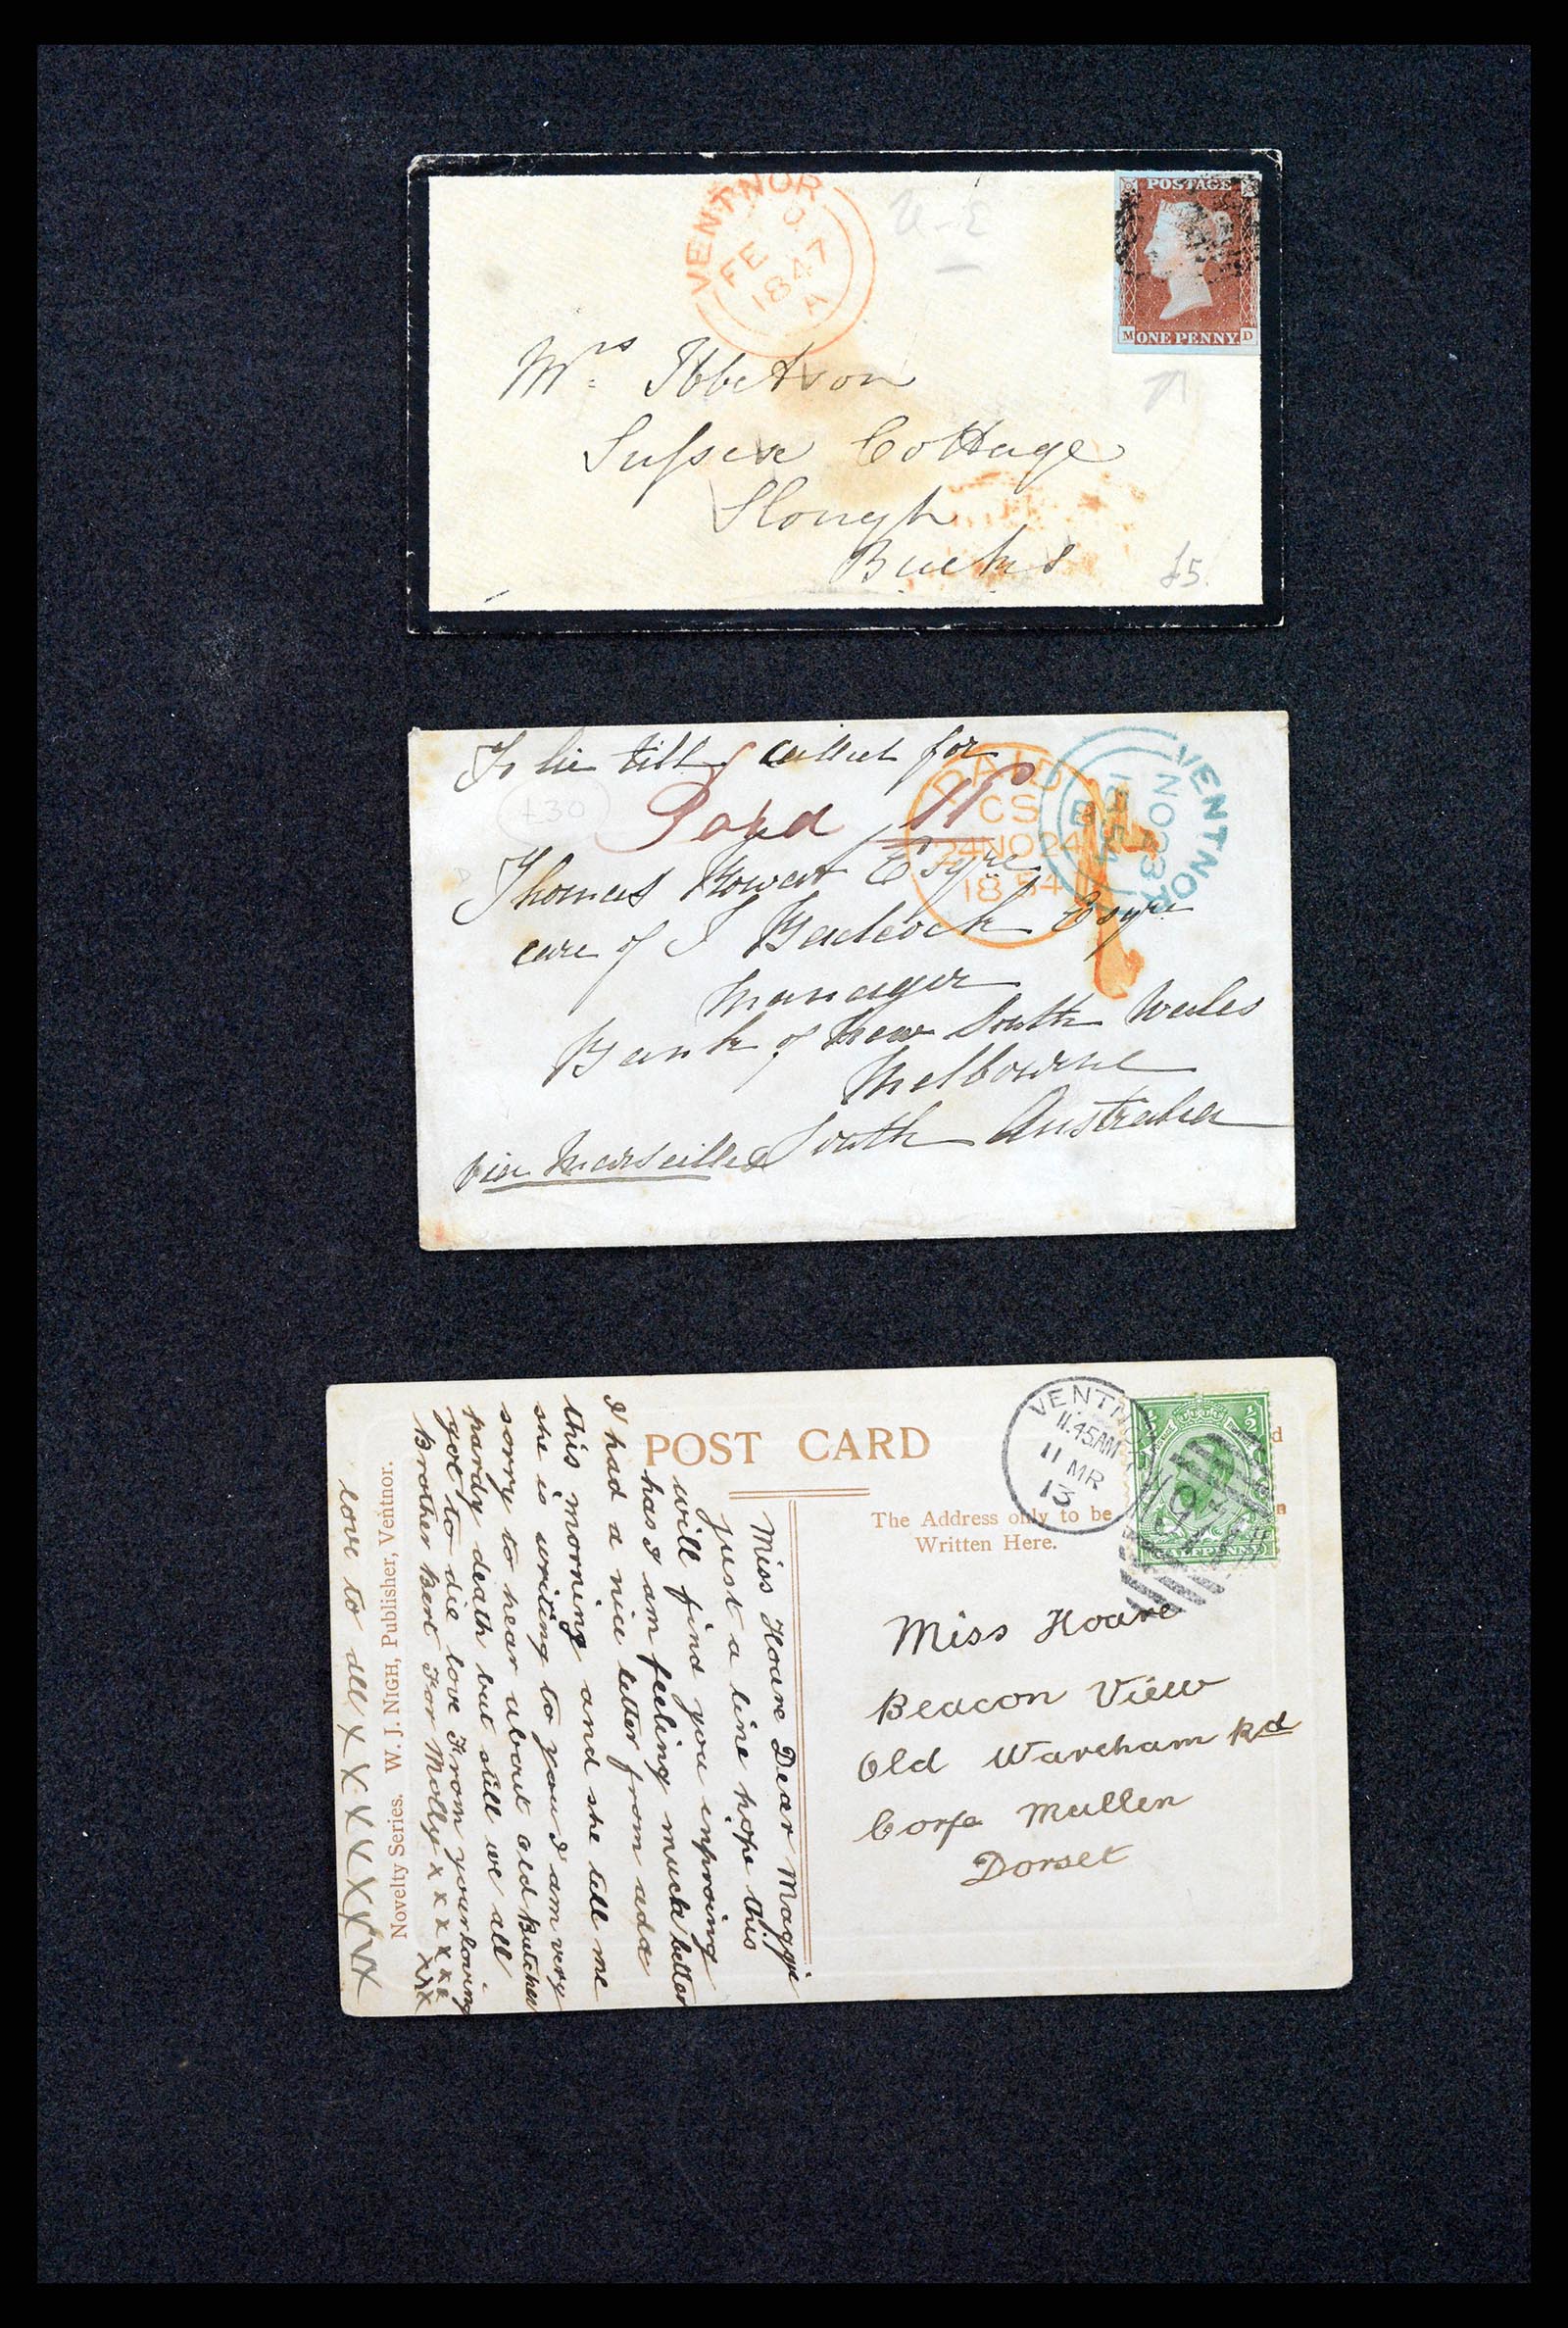 VENTNOR
FE
1847
A
POSTAGE
M ONE PENNY D
Mrs Ibbetson
Sussex Cottage
Slough
Bucks
£5
To lie till called for
£30
Paid
PAID
CS
24 NO 24
1854
VENTNOR
NO 23
1854
B
Thomas Esqre
care of J Badcock Esqre
Manager
Bank of New South Wales
Melbourne
South Australia
via Marseilles
POST CARD
The Address only to be
Written Here.
VENTN
11.45AM
11 MR
13
Miss Hoare
Beacon View
Old Wareham Rd
Corfe Mullen
Dorset
Miss Hoare Dear Maggie
Just a line hope this
will find you inproing
has I am feeling much better
I had a nice letter from ada
this morning and she tell me
she is writing to you I am very
sorry to hear about old Butcher
pardy death but still we all
got to die love From your loving
Brother Bert For Molly x x x x x x
x x x
Novelty Series. W. J. NIGH, Publisher, Ventnor.
love to all x x x x x x x x